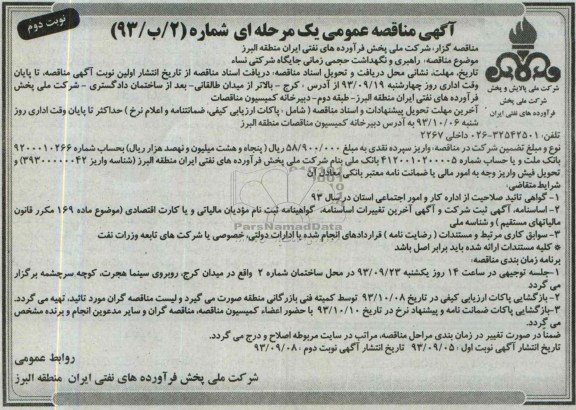 نوبت دوم
آگهی مناقصه عمومی یک مرحله ای شماره (۲/ب/۹۳)
شرکت ملی پالایش و پخش
شرکت ملی پخش
فرآورده های نفتی ایران
مناقصه گزار: شرکت ملی پخش فرآورده های نفتی ایران منطقه البرز
موضوع مناقصه: راهبری و نگهداشت حجمی زمانی جایگاه شرکتی نساء
تاریخ، مهلت، نشانی محل دریافت و تحویل اسناد مناقصه: دریافت اسناد مناقصه از تاریخ انتشار اولین نوبت آگهی مناقصه، تا پایان
وقت اداری روز چهارشنبه ۹۳/۰۹/۱۹ از آدرس : کرج - بالاتر از میدان طالقانی- بعد از ساختمان دادگستری - شرکت ملی پخش
فرآورده های نفتی ایران منطقه البرز- طبقه دوم- دبیرخانه کمیسیون مناقصات
آخرین مهلت تحویل پیشنهادات و اسناد مناقصه ( شامل : پاکات ارزیابی کیفی، ضمانتنامه و اعلام نرخ ) حداکثر تا پایان وقت اداری روز
شنبه ۹۳/۱۰/۰۶ به آدرس دبیرخانه کمیسیون مناقصات منطقه البرز
تلفن: ۳۲۵۴۲۵۰۱-۰۲۶ داخلی ۲۲۶۷
نوع و مبلغ تضمین شرکت در مناقصه: واریز سپرده نقدی به مبلغ ۵۸/۹۰۰/۰۰۰ ریال ( پنجاه و هشت میلیون و نهصد هزار ریال) بحساب شماره ۹۲۰۰۰۱۰۲۶۶
بانک ملت و یا حساب شماره ۴۱۲۰۰۱۰۲۰۰۰۰۵ بانک ملی بنام شرکت ملی پخش فرآورده های نفتی ایران منطقه البرز (شناسه واریز ۳۹۳۰۰۰۰۰۰۴۲) و
تحویل فیش واریز وجه به امور مالی یا ضمانت نامه معتبر بانکی معادل آن
شرایط متقاضی:
۱- گواهی تائید صلاحیت از اداره کار و امور اجتماعی استان در سال ۹۳
۲- اساسنامه، آگهی ثبت شرکت و آگهی آخرین تغییرات اساسنامه، گواهینامه ثبت نام مؤدیان مالیاتی و یا کارت اقتصادی (موضوع ماده ۱۶۹ مکرر قانون
مالیاتهای مستقیم ) و شناسه ملی
۳- سوابق کاری مرتبط و مستندات ( رضایت نامه ) قراردادهای انجام شده با ادارات دولتی، خصوصی یا شرکت های تابعه وزرات نفت
* کلیه مستندات ارائه شده باید برابر اصل باشد
برنامه زمان بندی مناقصه:
۱-جلسه توجیهی در ساعت ۱۴ روز یکشنبه ۹۳/۰۹/۲۳ در محل ساختمان شماره ۲ واقع در میدان کرج، روبروی سینما هجرت، کوچه سرچشمه برگزار
می گردد
۲- بازگشایی پاکات ارزیابی کیفی در تاریخ ۹۳/۱۰/۰۸ توسط کمیته فنی بازرگانی منطقه صورت می گیرد و لیست مناقصه گران مورد تائید، تهیه می گردد.
۳-بازگشایی پاکات ضمانت نامه و پیشنهاد نرخ در تاریخ ۹۳/۱۰/۱۰ با حضور اعضاء کمیسیون مناقصه، مناقصه گران و سایر مدعوین انجام و برنده مشخص
می گردد.
ضمناً در صورت تغییر در زمان بندی مراحل مناقصه، مراتب در سایت مربوطه اصلاح و درج می گردد.
تاریخ انتشار آگهی نوبت اول : ۹۳/۰۹/۰۵ تاریخ انتشار آگهی نوبت دوم : ۹۳/۰۹/۰۸
روابط عمومی
شرکت ملی پخش فرآورده های نفتی ایران منطقه البرز
ParsNamadData